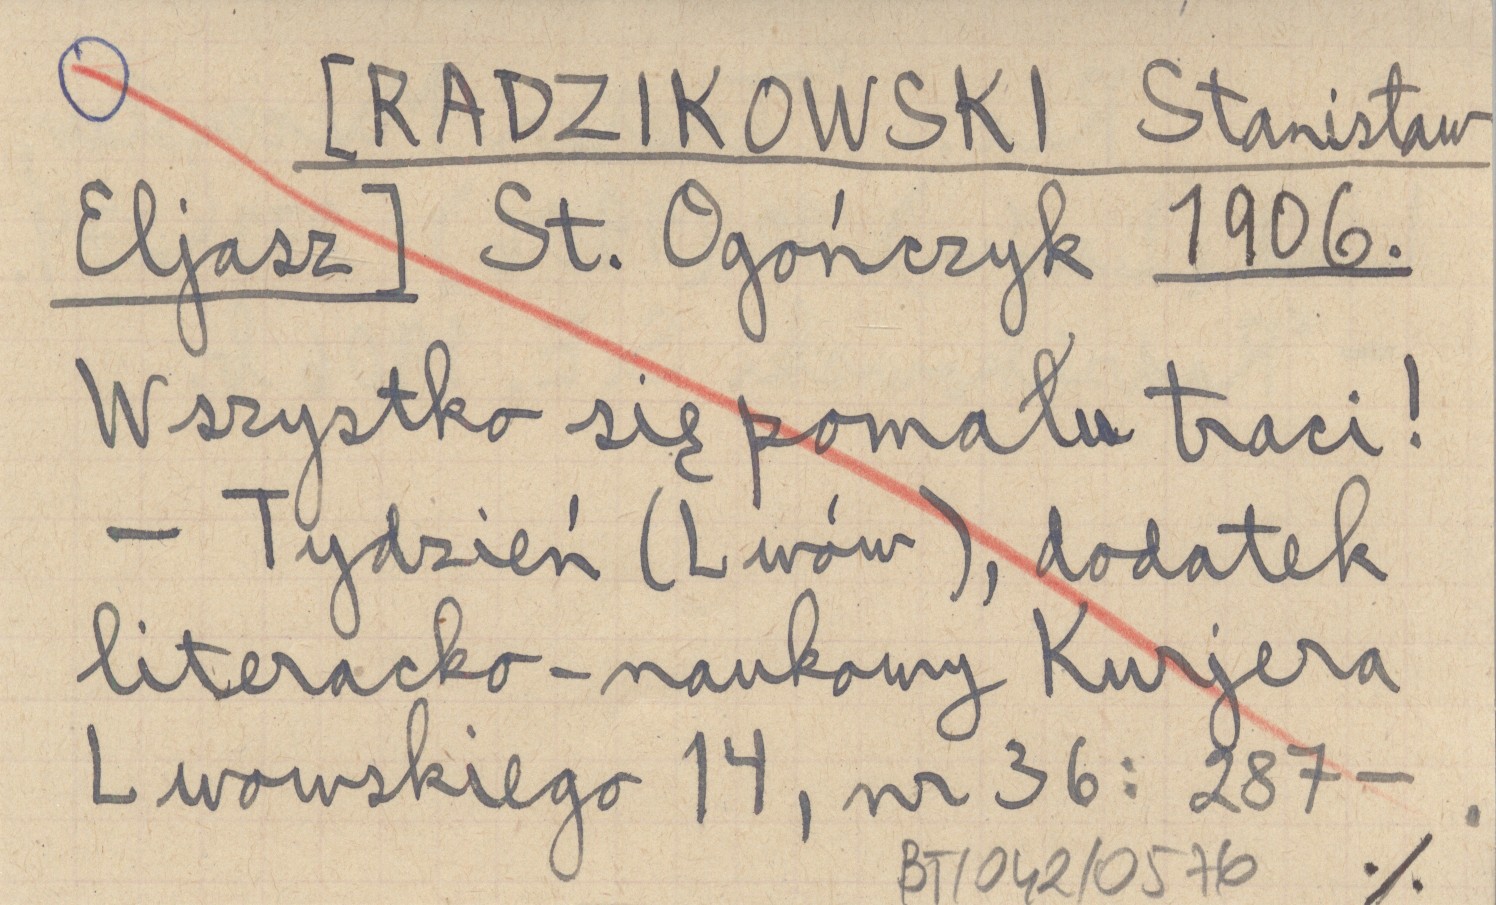 [RADZIKOWSKI Stanisław
Eljasz] St. Ogończyk 1906.
Wszystko się pomału traci!
— Tydzień (Lwów), dodatek
literacko-naukowy Kurjera
Lwowskiego 14, nr 36: 287—.
BT/042/0576
./.